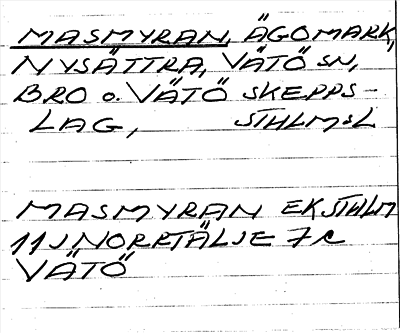 MASMYRAN, ÄGOMARK,
NYSÄTTRA, VÄTÖ SN,
BRO o. VÄTÖ SKEPPS-
LAG, STHLMSL
MASMYRAN EKSTHLM
11J NORRTÄLJE 7c
VÄTÖ